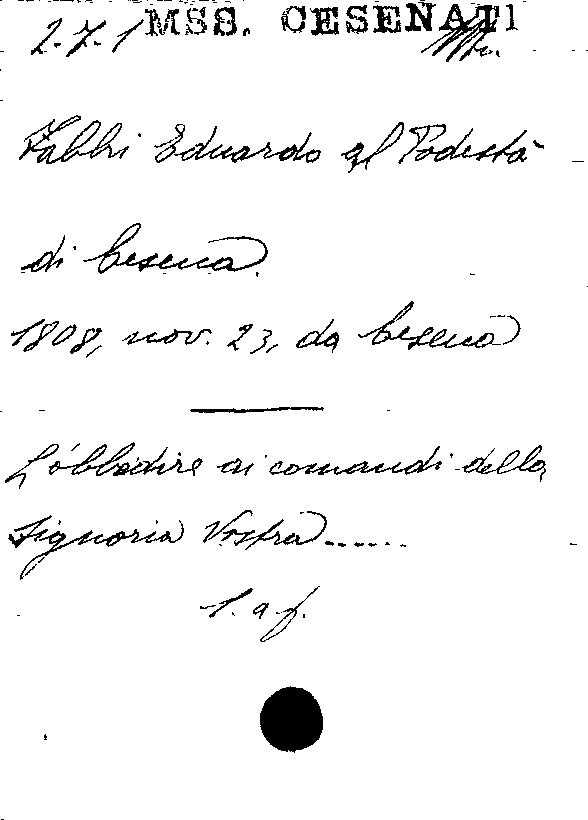 MSS. CESENATI
2-7-1
Fabbri Eduardo al Podestà
di Cesena.
1808, nov. 23, da Cesena
L'obbedire ai comandi della
Signoria Vostra......
l. a f.